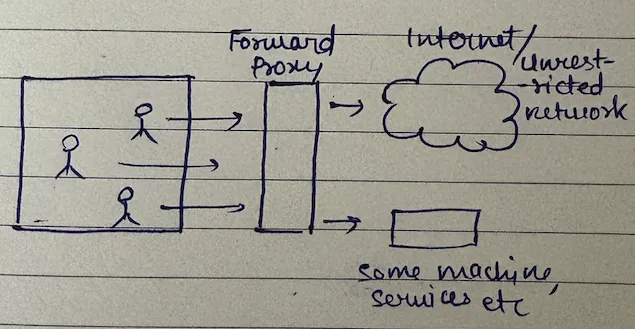 Forward
Proxy
Internet/
Unrest-
-ricted
network
some machine,
services etc